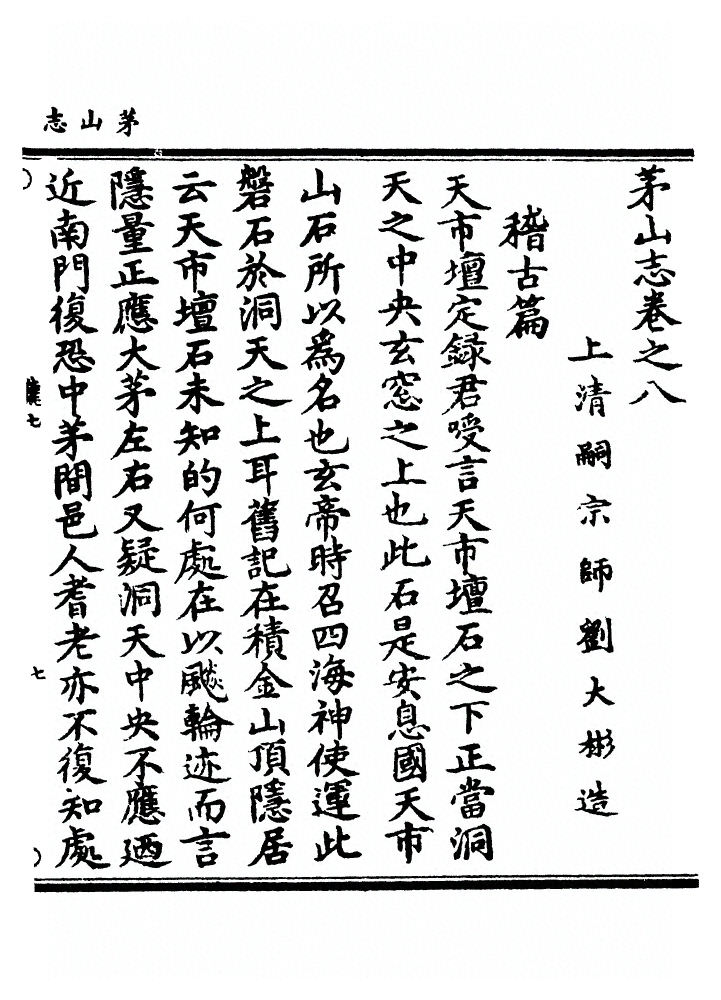 茅山志
茅山志卷之八
上清嗣宗師劉大彬造
稽古篇
天市壇定録君受言天市壇石之下正當洞
天之中央玄窓之上也此石是安息國天市
山石所以爲名也玄帝時召四海神使運此
磐石於洞天之上耳舊記在積金山頂隱居
云天市壇石未知的何處在以飈輪迹而言
隱量正應大茅左右又疑洞天中央不應迺
近南門復恐中茅間邑人耆老亦不復知處
七
七